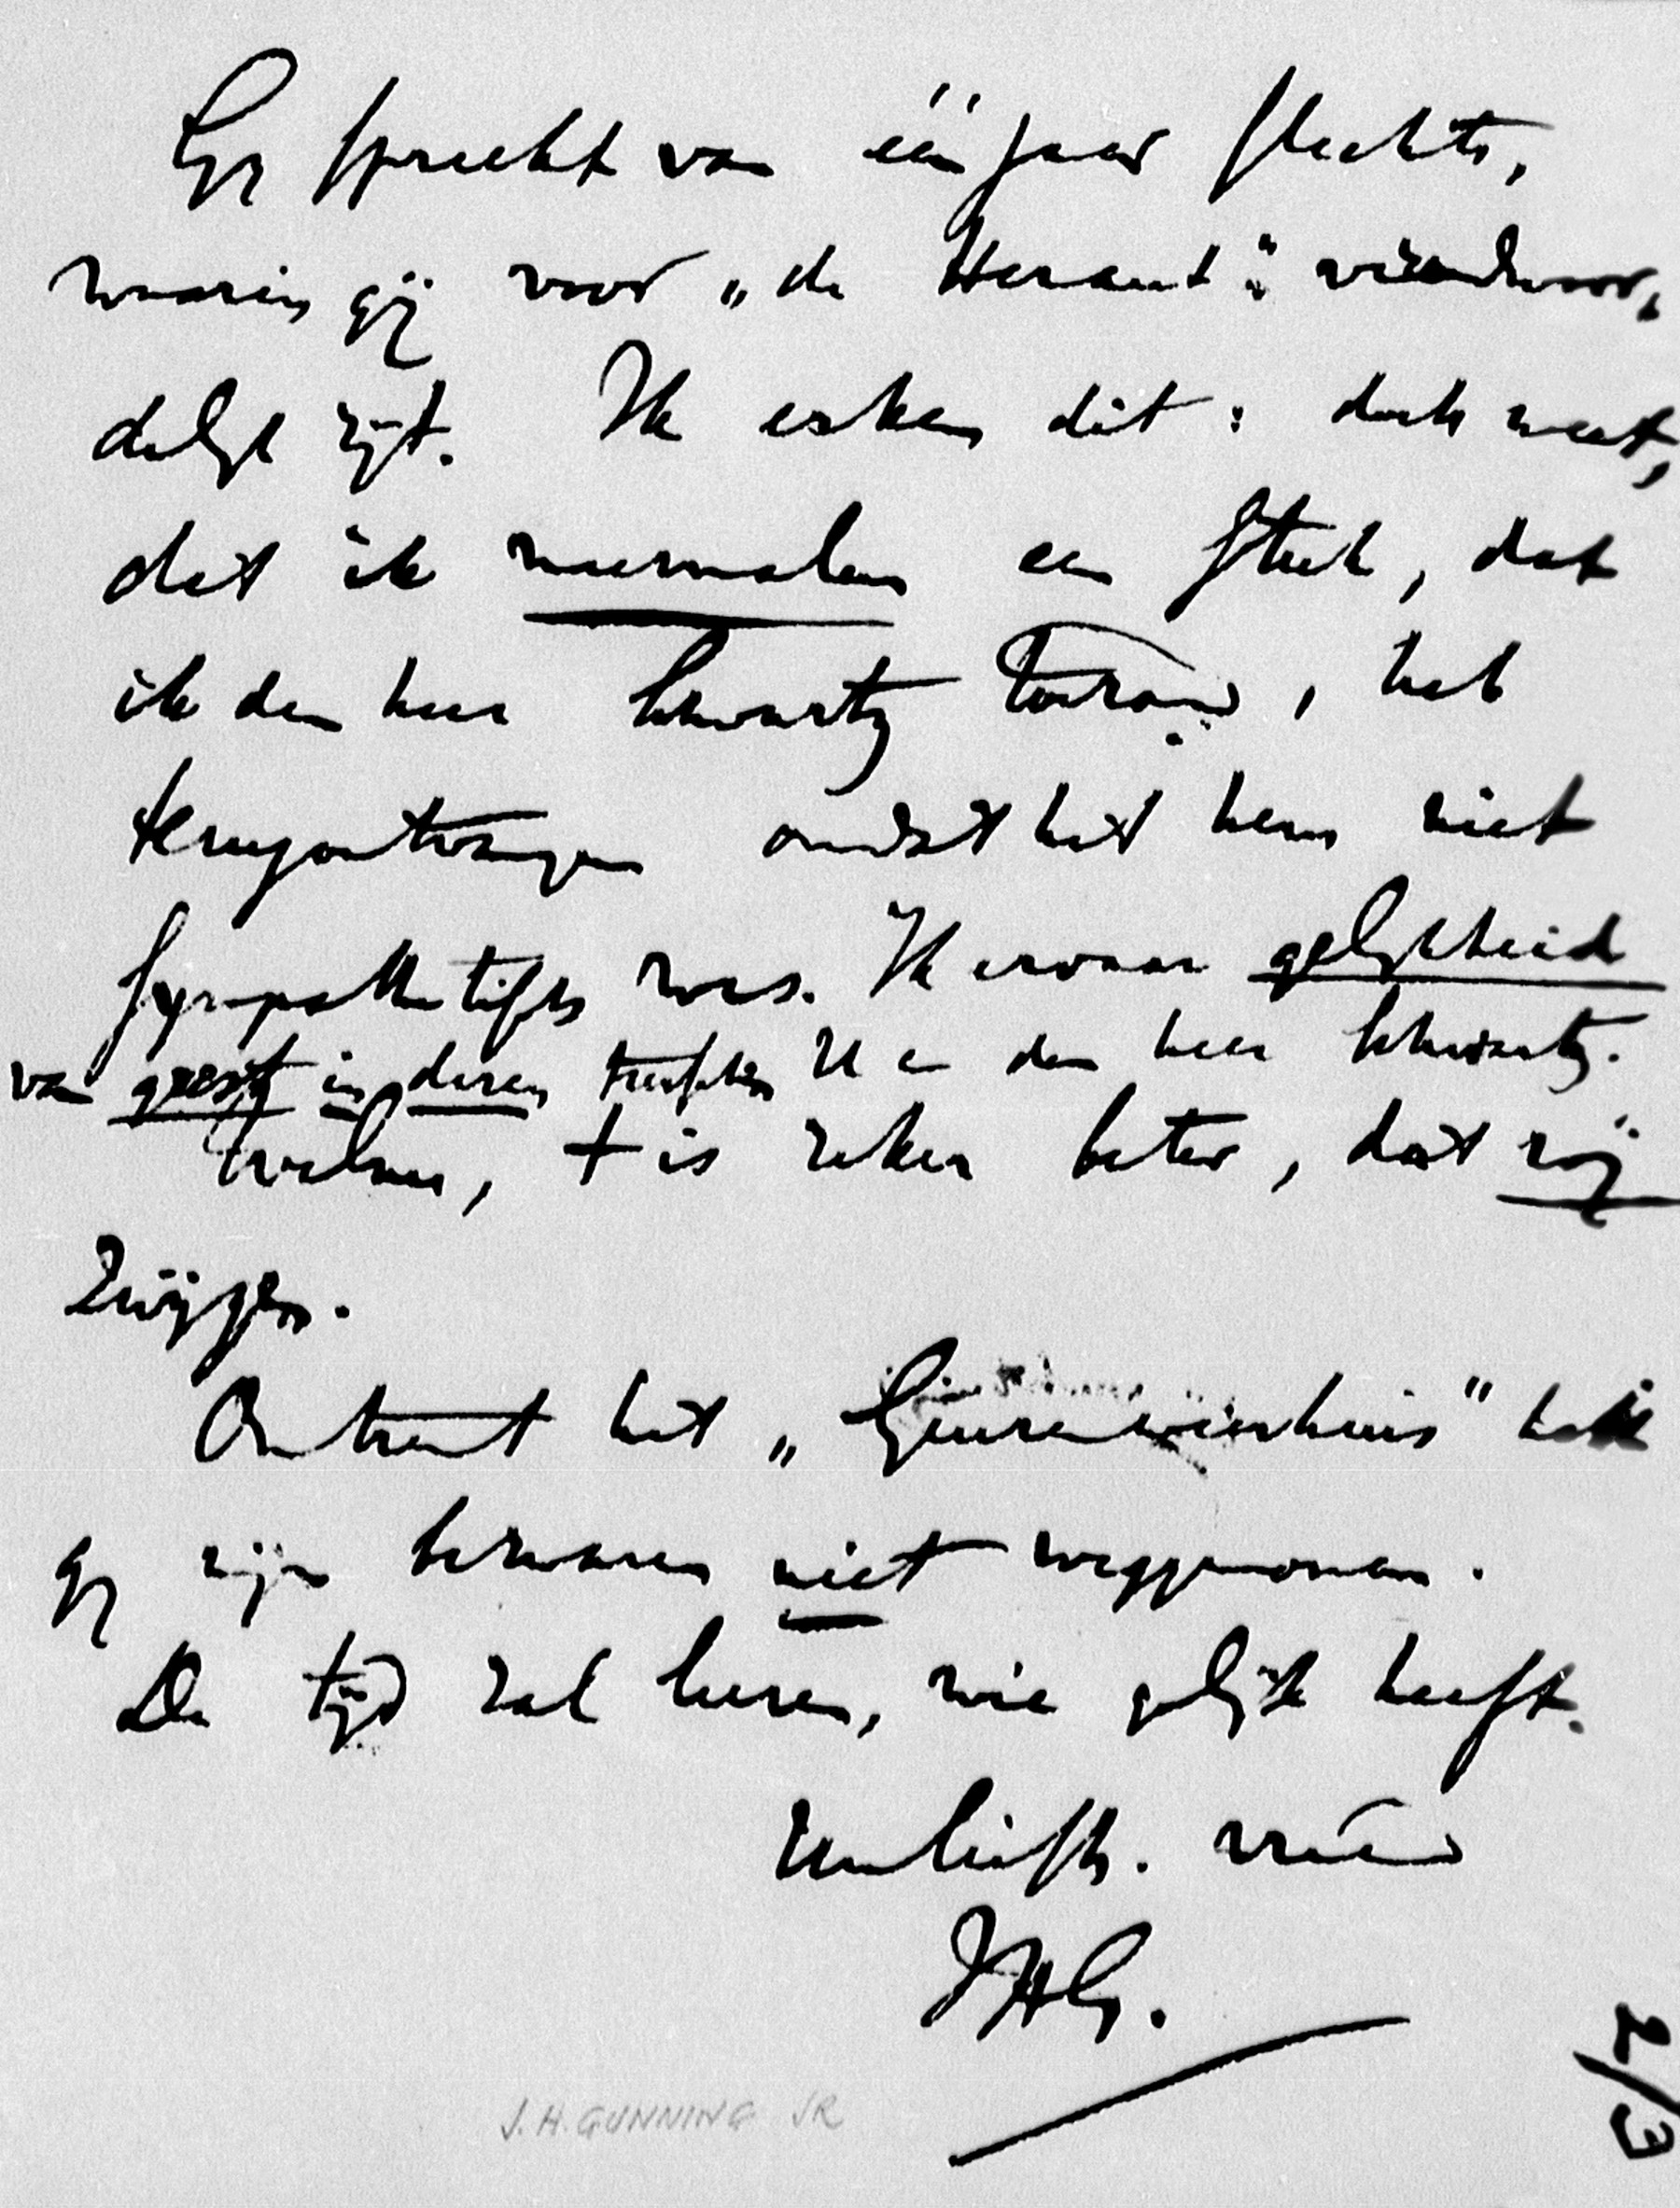 Gij spreekt van één jaar slechts,
waarin gij voor „de Heraut" verantwoor-
delijk zijt. Ik erken dit: doch weet,
dat ik meermalen een stuk, dat
ik den heer Schwartz toezond, heb
terugontvangen omdat het hem niet
sympathetisch was. Ik ervaar gelijkheid
van geest in dezen tusschen U en den heer Schwartz.
Welnu, 't is zeker beter, dat wij
zwijgen.
Omtrent het „Geuzenweeshuis"
gij mijn bezwaren niet weggenomen.
De tijd zal leeren, wie gelijk heeft.
Uw liefh. vriend
JHG.
J.H. GUNNING JR
2/3